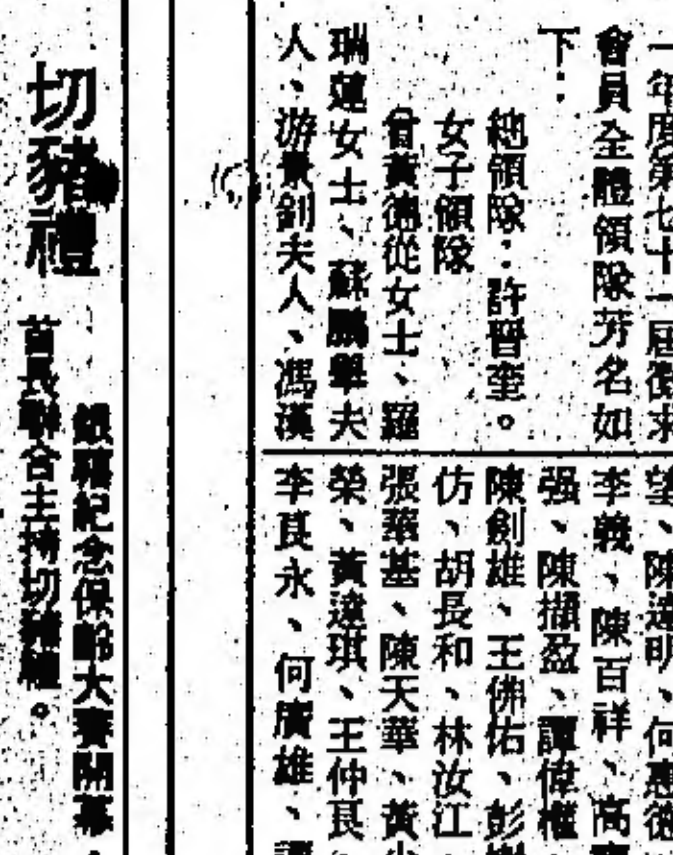 一年度第七十一屆徵求
會員全體領隊芳名如
下：
總領隊：許晉奎。
女子領隊
曾黃德從女士、羅
瑞蓮女士、蘇鵬舉夫
人、游景釗夫人、馮漢
望、陳達明、何惠德
李義、陳百祥、高
强、陳擷盈、譚偉權
陳劍雄、王佛佑、彭
仿、胡長和、林汝江
張華基、陳天華、黃少
榮、黃達琪、王仲良
李良永、何廣雄、譚
切豬禮
銀禧紀念保齡大賽開幕，
首長聯合主持切豬禮。